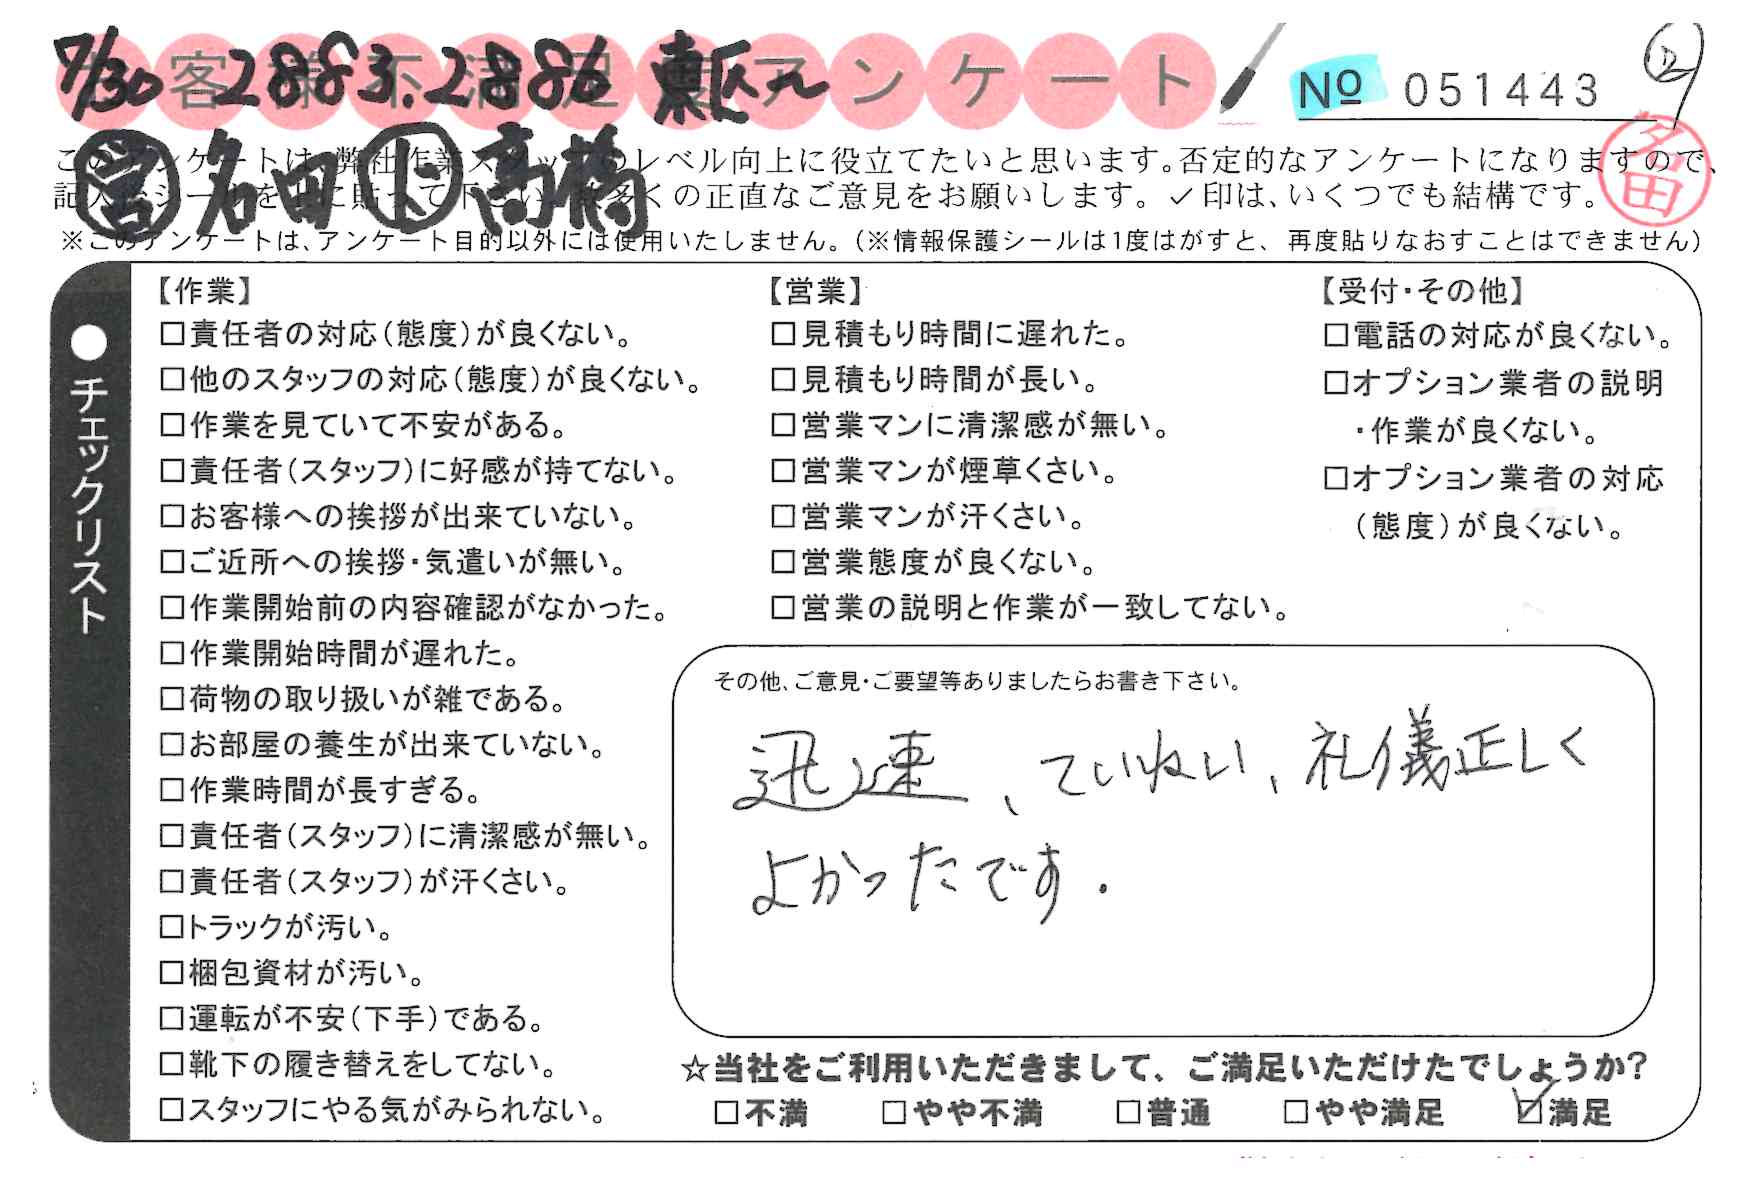 7/30 2883.2886
客様不満足アンケート
№ 051443
営 名田 上 高橋
名田
このアンケートは、弊社作業スタッフのレベル向上に役立てたいと思います。否定的なアンケートになりますので、
記入後シールを上に貼って下さい。数多くの正直なご意見をお願いします。✓印は、いくつでも結構です。
※このアンケートは、アンケート目的以外には使用いたしません。(※情報保護シールは1度はがすと、再度貼りなおすことはできません)
●チェックリスト
【作業】
□責任者の対応(態度)が良くない。
□他のスタッフの対応(態度)が良くない。
□作業を見ていて不安がある。
□責任者(スタッフ)に好感が持てない。
□お客様への挨拶が出来ていない。
□ご近所への挨拶・気遣いが無い。
□作業開始前の内容確認がなかった。
□作業開始時間が遅れた。
□荷物の取り扱いが雑である。
□お部屋の養生が出来ていない。
□作業時間が長すぎる。
□責任者(スタッフ)に清潔感が無い。
□責任者(スタッフ)が汗くさい。
□トラックが汚い。
□梱包資材が汚い。
□運転が不安(下手)である。
□靴下の履き替えをしてない。
□スタッフにやる気がみられない。
【営業】
□見積もり時間に遅れた。
□見積もり時間が長い。
□営業マンに清潔感が無い。
□営業マンが煙草くさい。
□営業マンが汗くさい。
□営業態度が良くない。
□営業の説明と作業が一致してない。
【受付・その他】
□電話の対応が良くない。
□オプション業者の説明
・作業が良くない。
□オプション業者の対応
(態度)が良くない。
その他、ご意見・ご要望等ありましたらお書き下さい。
迅速、ていねい、礼儀正しく
よかったです.
☆当社をご利用いただきまして、ご満足いただけたでしょうか?
□不満 □やや不満 □普通 □やや満足 ☑満足